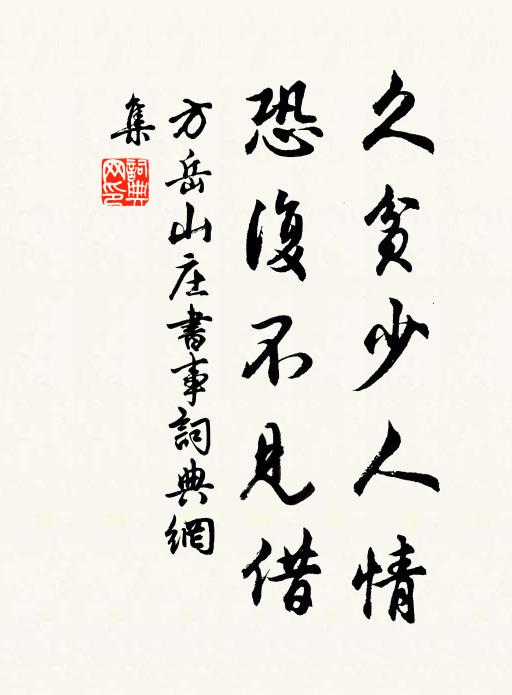 久貧少人情
恐復不見借
方岳山庄書事詞典網
集
詞典
网印